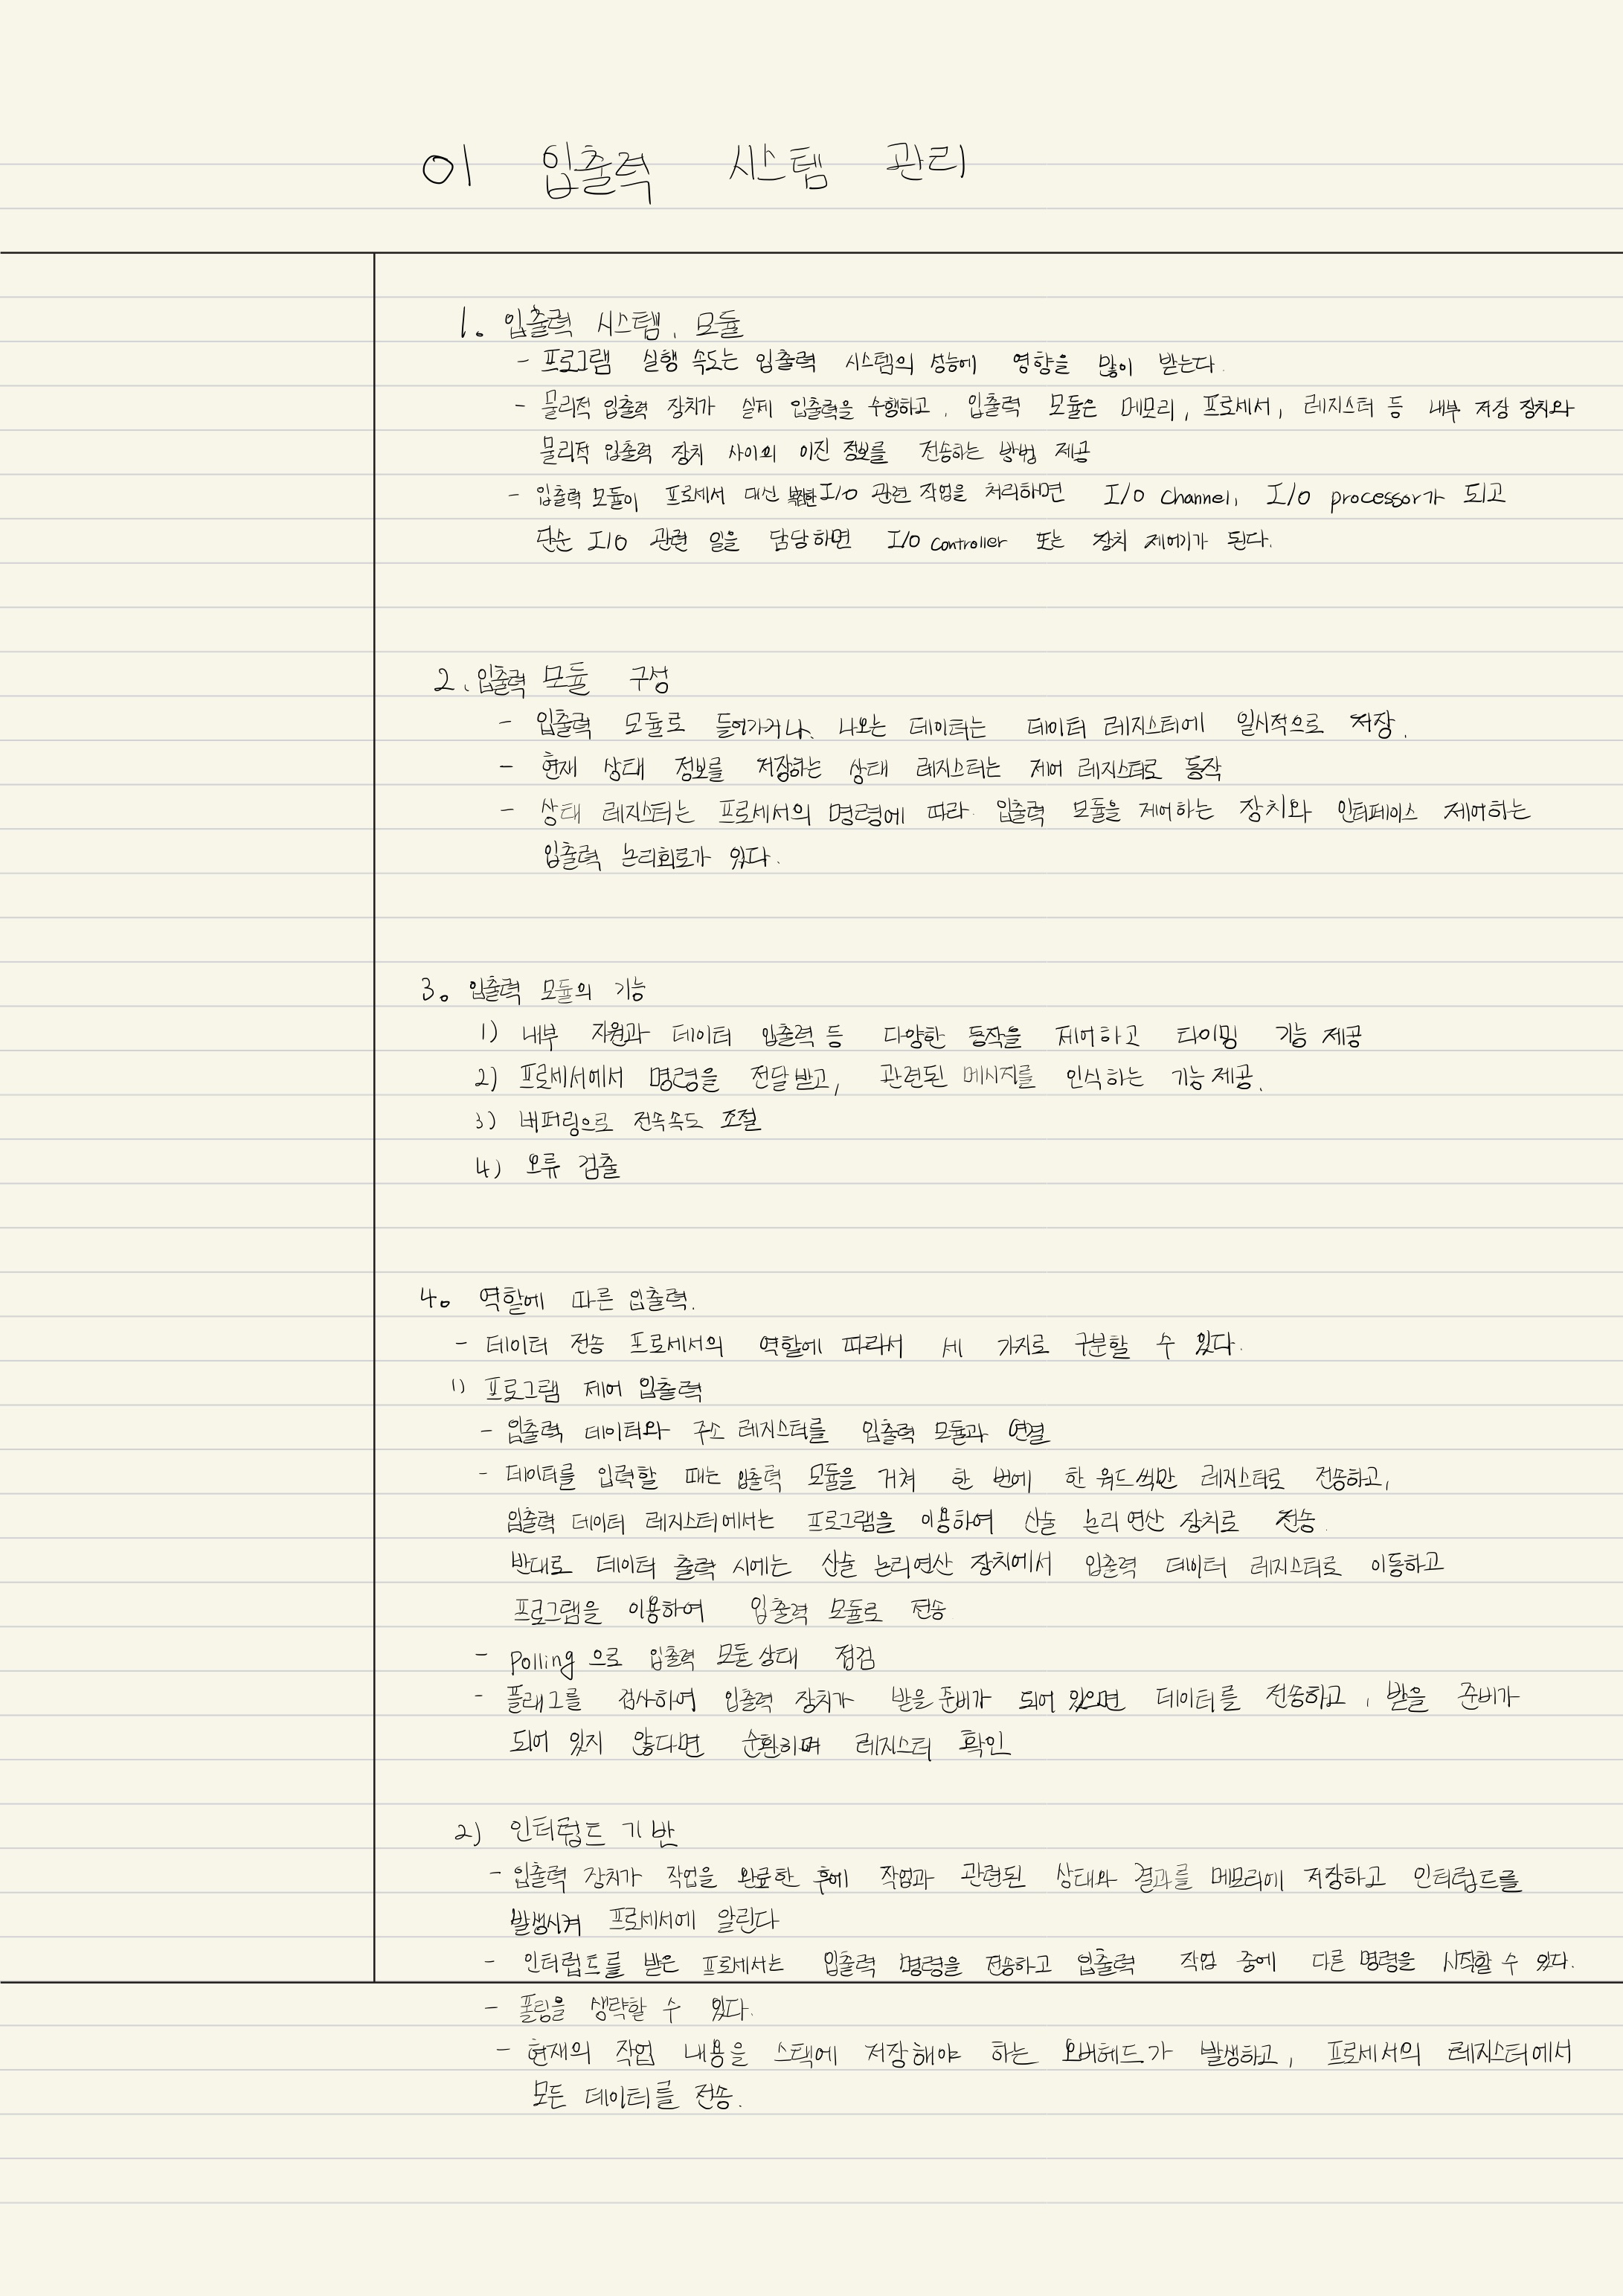 01 입출력 시스템 관리
1. 입출력 시스템, 모듈
- 프로그램 실행 속도는 입출력 시스템의 성능에 영향을 많이 받는다.
- 물리적 입출력 장치가 실제 입출력을 수행하고, 입출력 모듈은 메모리, 프로세서, 레지스터 등 내부 저장 장치와
물리적 입출력 장치 사이의 이진 정보를 전송하는 방법 제공
- 입출력 모듈이 프로세서 대신 복잡한 I/O 관련 작업을 처리하면 I/O Channel, I/O processor가 되고
단순 I/O 관련 일을 담당하면 I/O controller 또는 장치 제어기가 된다.
2. 입출력 모듈 구성
- 입출력 모듈로 들어가거나, 나오는 데이터는 데이터 레지스터에 일시적으로 저장.
- 현재 상태 정보를 저장하는 상태 레지스터는 제어 레지스터로 동작
- 상태 레지스터는 프로세서의 명령에 따라 입출력 모듈을 제어하는 장치와 인터페이스 제어하는
입출력 논리회로가 있다.
3. 입출력 모듈의 기능
1) 내부 자원과 데이터 입출력 등 다양한 동작을 제어하고 타이밍 기능 제공
2) 프로세서에서 명령을 전달받고, 관련된 메시지를 인식하는 기능 제공.
3) 버퍼링으로 전속속도 조절
4) 오류 검출
4. 역할에 따른 입출력.
- 데이터 전송 프로세서의 역할에 따라서 세 가지로 구분할 수 있다.
1) 프로그램 제어 입출력
- 입출력 데이터와 주소 레지스터를 입출력 모듈과 연결
- 데이터를 입력할 때는 입출력 모듈을 거쳐 한 번에 한 워드씩만 레지스터로 전송하고,
입출력 데이터 레지스터에서는 프로그램을 이용하여 산술 논리 연산 장치로 전송.
반대로 데이터 출력 시에는 산술 논리연산 장치에서 입출력 데이터 레지스터로 이동하고
프로그램을 이용하여 입출력 모듈로 전송
- Polling 으로 입출력 모듈 상태 점검
- 플래그를 검사하여 입출력 장치가 받을 준비가 되어 있으면 데이터를 전송하고, 받을 준비가
되어 있지 않다면 순환하며 레지스터 확인
2) 인터럽트 기반
- 입출력 장치가 작업을 완료한 후에 작업과 관련된 상태와 결과를 메모리에 저장하고 인터럽트를
발생시켜 프로세서에 알린다
- 인터럽트를 받은 프로세서는 입출력 명령을 전송하고 입출력 작업 중에 다른 명령을 시작할 수 있다.
- 폴링을 생략할 수 있다.
- 현재의 작업 내용을 스택에 저장해야 하는 오버헤드가 발생하고, 프로세서의 레지스터에서
모든 데이터를 전송.